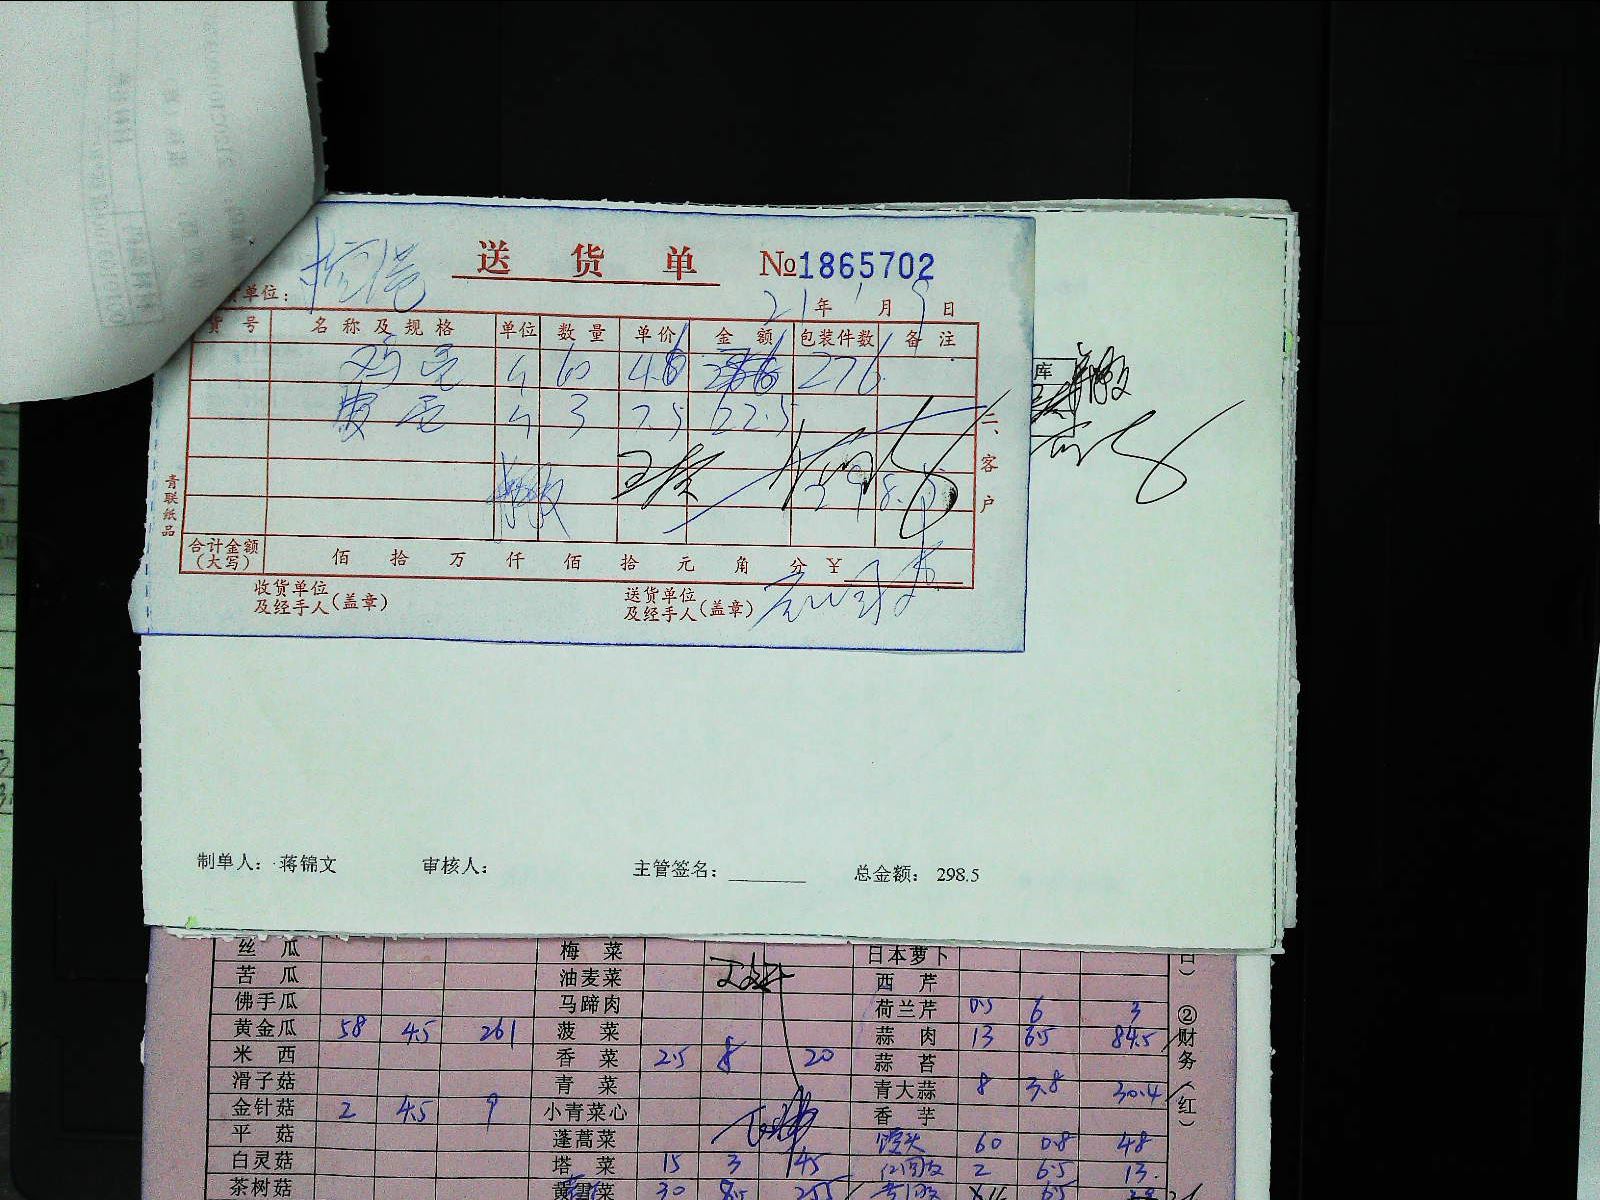 送货单 №1865702
单位：
21年1月9日
货号 名称及规格 单位 数量 单价 金额 包装件数 备注
鸡蛋 斤 60 4.6 276
蛋 斤 3 7.5 22.5
298.5
合计金额（大写） 佰 拾 万 仟 佰 拾 元 角 分 ￥
收货单位及经手人（盖章） 送货单位及经手人（盖章）
青联纸品
二、客户
库
制单人：蒋锦文 审核人： 主管签名： 总金额：298.5
丝瓜 梅菜 日本萝卜
苦瓜 油麦菜 西芹
佛手瓜 马蹄肉 荷兰芹 0.5 6 3
黄金瓜 58 4.5 261 菠菜 蒜肉 13 6.5 84.5
米西 香菜 2.5 8 20 蒜苔
滑子菇 青菜 青大蒜 8 3.8 30.4
金针菇 2 4.5 9 小青菜心 香芋
平菇 蓬蒿菜 馒头 60 0.8 48
白灵菇 塔菜 15 3 45 2 6.5 13
茶树菇 30 8.5 255 6.5
②财务（红）